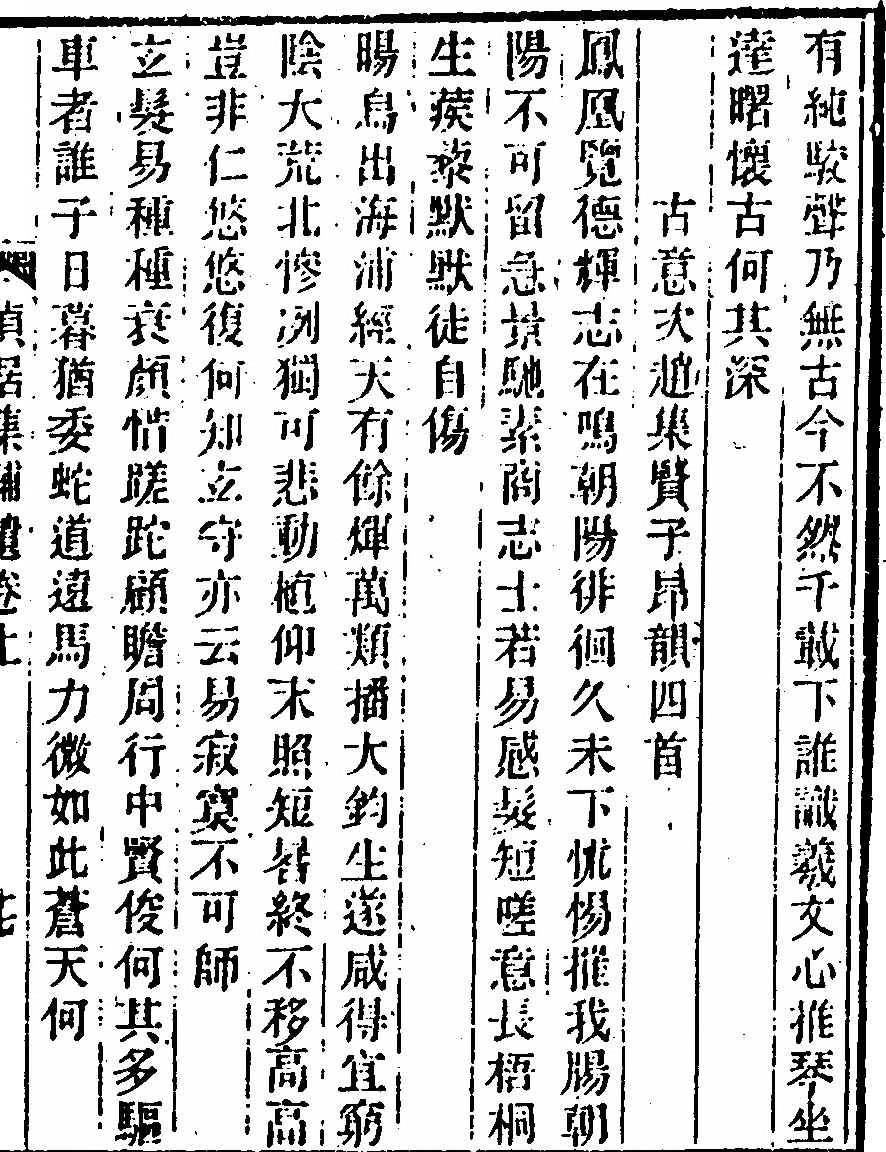 有純駁聲乃無古今不然千載下誰識羲文心推琴坐
達曙懷古何其深
古意次趙集賢子昂韻四首
鳳凰覽德輝志在鳴朝陽徘徊久未下慌惕摧我腸朝
陽不可留急景馳素商志士若易感髮短嗟意長梧桐
生蒺藜默默徒自傷
暘烏出海浦經天有餘煇萬類播大鈞生遂咸得宜窮
陰大荒北慘冽獨可悲動植仰末照短晷終不移高高
豈非仁悠悠復何知玄守亦云易寂寞不可師
玄髮易種種衰顏惜蹉跎顧瞻周行中賢俊何其多驅
車者誰子日暮猶委蛇道遠馬力微如此蒼天何
貞居集補遺卷上